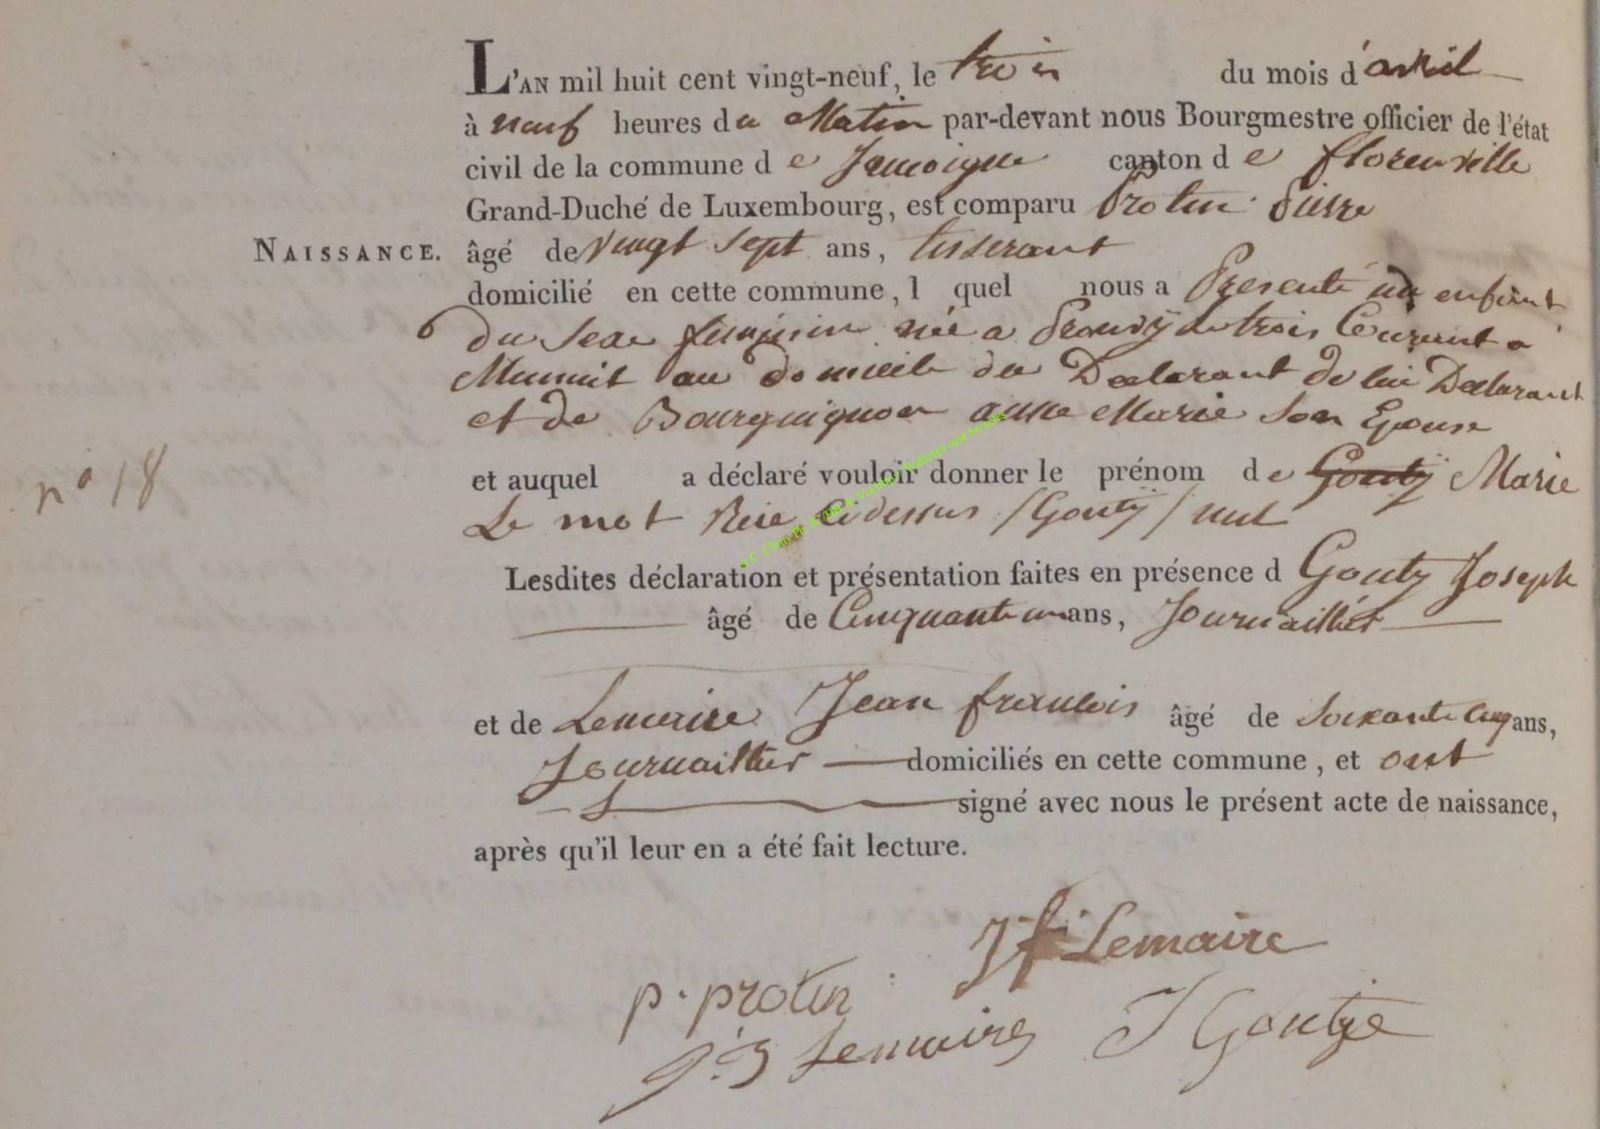 L'AN mil huit cent vingt-neuf, le trois du mois d'avril
à neuf heures du Matin par-devant nous Bourgmestre officier de l'état
civil de la commune d e Jamoigne canton d e florenville
Grand-Duché de Luxembourg, est comparu Protin Pierre
NAISSANCE. âgé de vingt sept ans, tisserant
domicilié en cette commune, l quel nous a Presenté un enfant
du Sexe feminin née a Prouvÿ le trois Courant a
Minuit au domicile du Declarant de lui Declarant
et de Bourguignon anne Marie Son Epouse
n° 18
et auquel a déclaré vouloir donner le prénom d e Goutÿ Marie
Le mot Reié cidessus /Goutÿ/ nul
Lesdites déclaration et présentation faites en présence d Gouty Joseph
âgé de Cinquante un ans, Journaillier
et de Lemaire Jean francois âgé de Soixante Cinq ans,
Journaillier domiciliés en cette commune, et ont
signé avec nous le présent acte de naissance,
après qu'il leur en a été fait lecture.
J f Lemaire
p. protin
Lemaire J Goutye